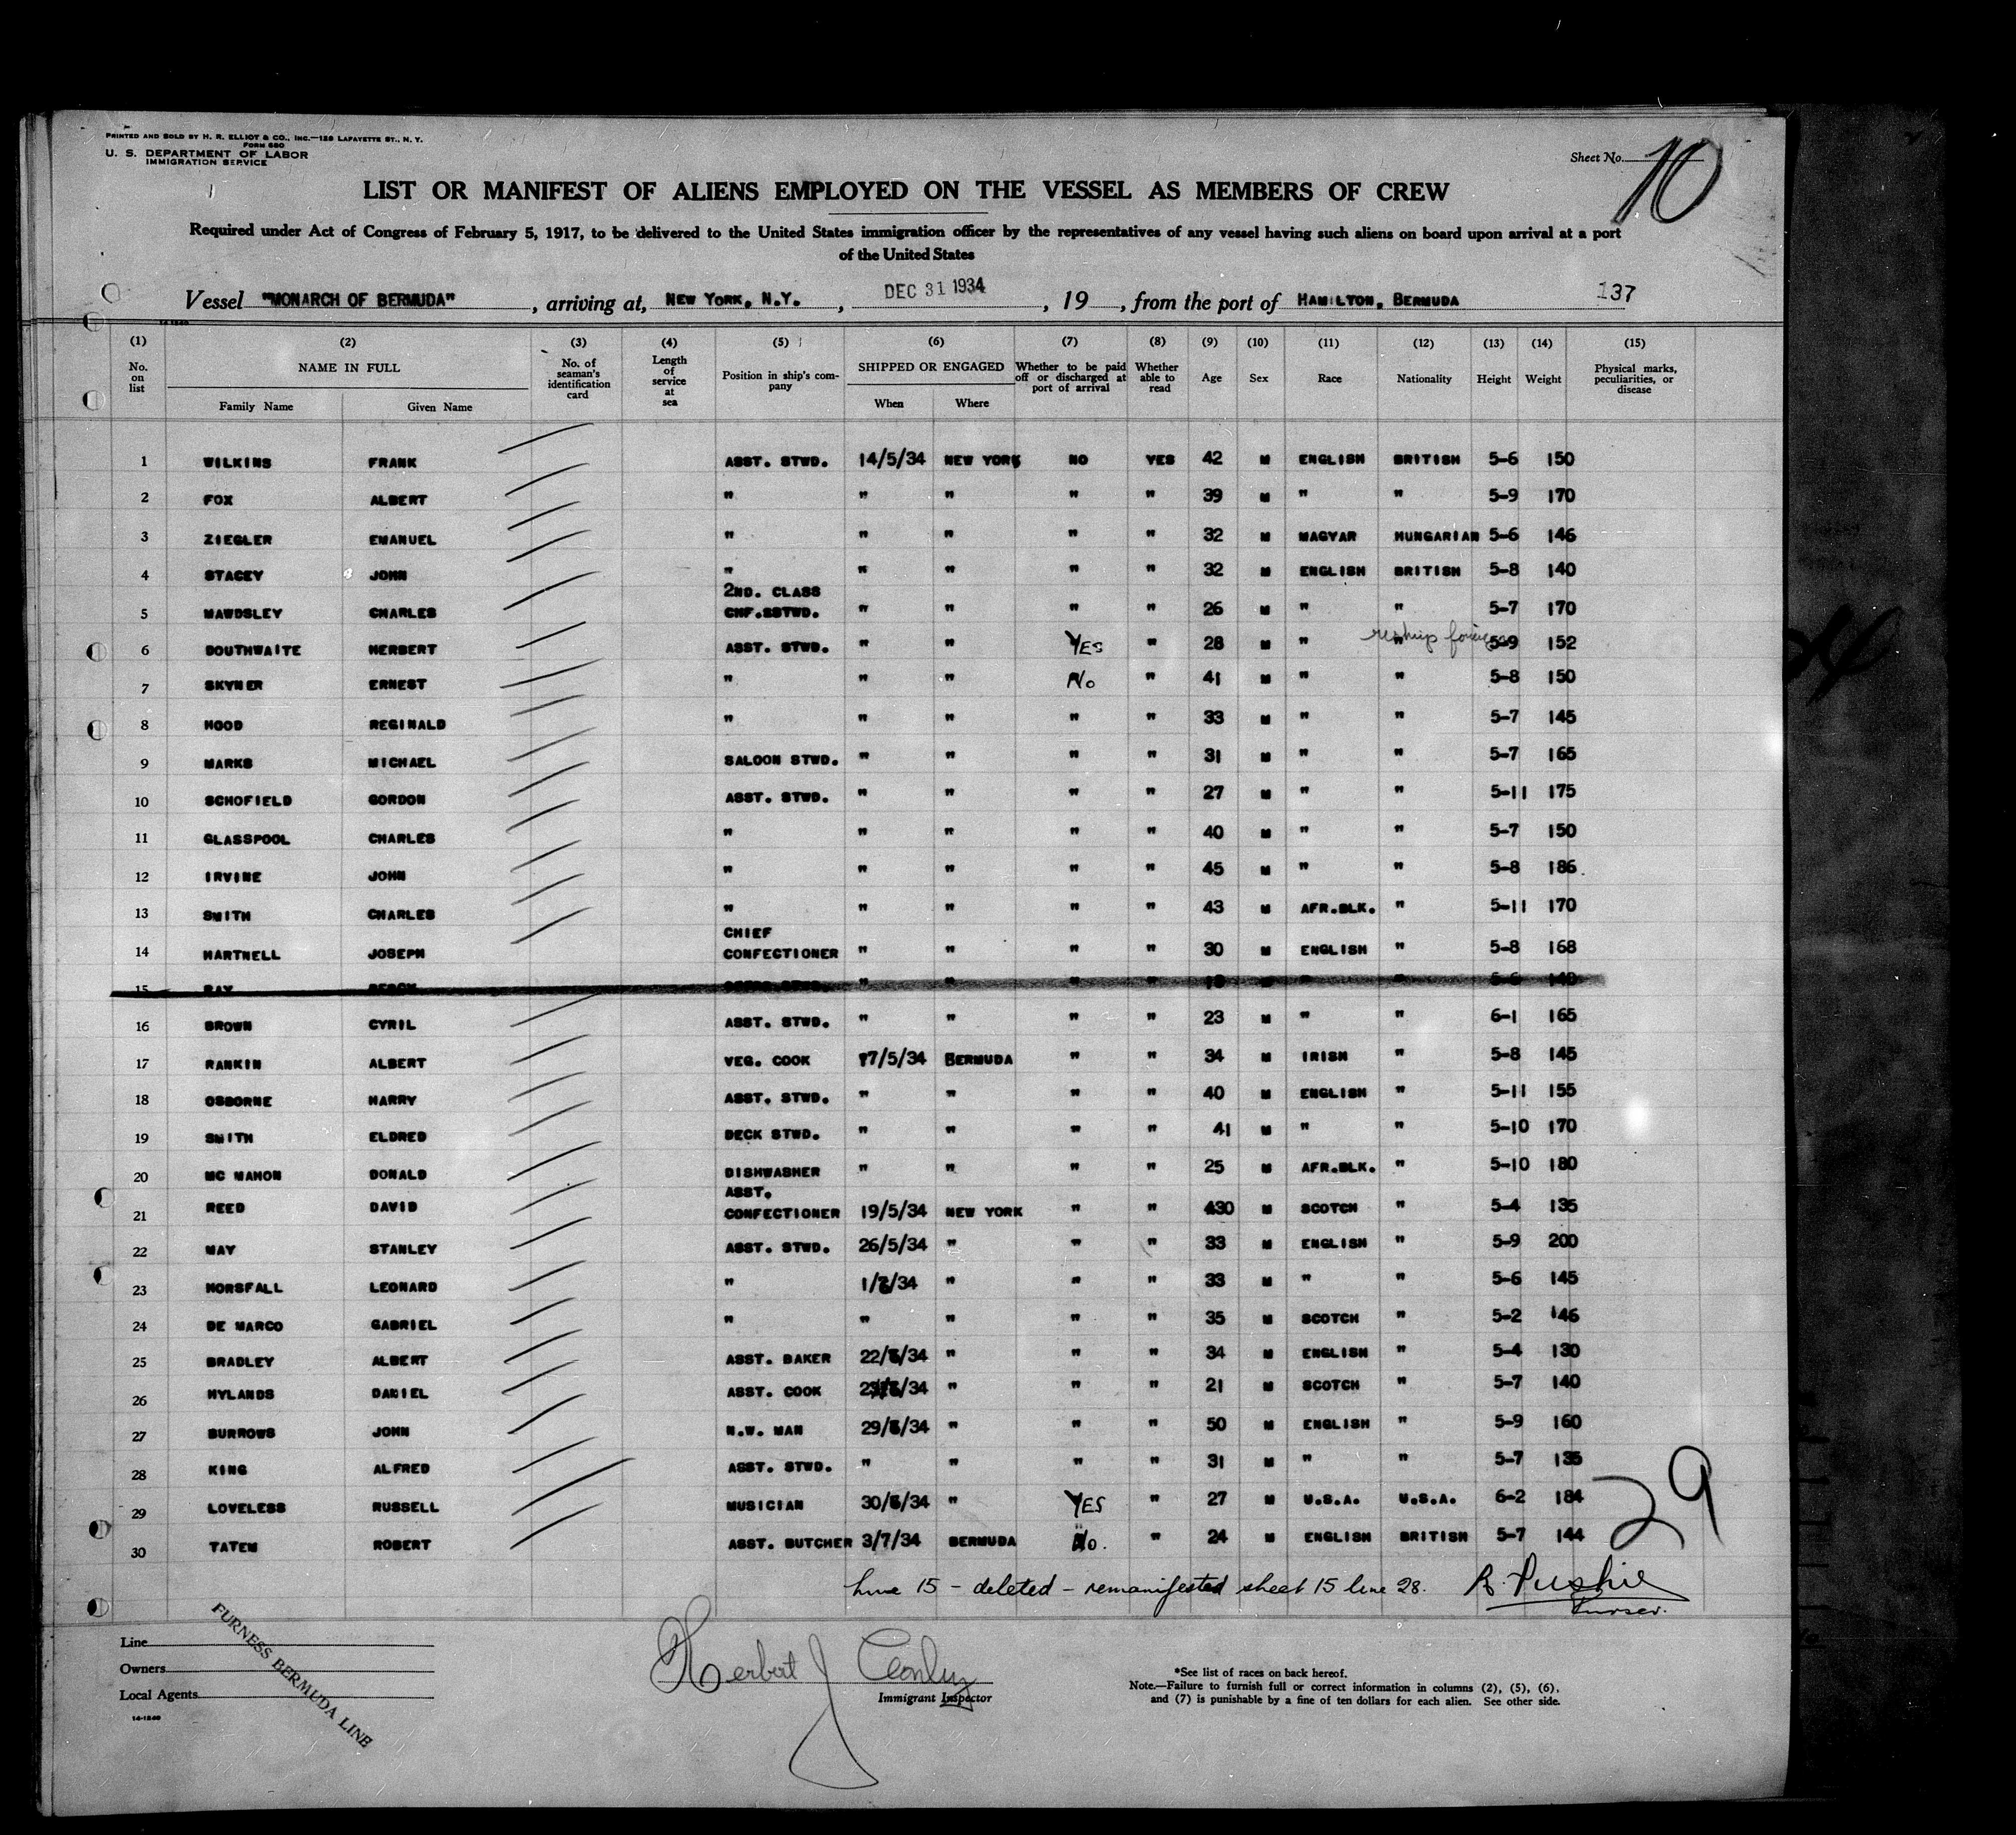 PRINTED AND SOLD BY H. R. ELLIOT & CO., INC.—129 LAFAYETTE ST., N. Y.
FORM 680
U. S. DEPARTMENT OF LABOR
IMMIGRATION SERVICE
Sheet No. 10
LIST OR MANIFEST OF ALIENS EMPLOYED ON THE VESSEL AS MEMBERS OF CREW
Required under Act of Congress of February 5, 1917, to be delivered to the United States immigration officer by the representatives of any vessel having such aliens on board upon arrival at a port
of the United States
Vessel "MONARCH OF BERMUDA", arriving at, NEW YORK, N.Y., DEC 31 1934, 19, from the port of HAMILTON, BERMUDA 137
(1) (2) (3) (4) (5) (6) (7) (8) (9) (10) (11) (12) (13) (14) (15)
No. on list NAME IN FULL Family Name Given Name No. of seaman's identification card Length of service at sea Position in ship's company SHIPPED OR ENGAGED When Where Whether to be paid off or discharged at port of arrival Whether able to read Age Sex Race Nationality Height Weight Physical marks, peculiarities, or disease
1 WILKINS FRANK ASST. STWD. 14/5/34 NEW YORK NO YES 42 M ENGLISH BRITISH 5-6 150
2 FOX ALBERT " " " " " 39 M " " 5-9 170
3 ZIEGLER EMANUEL " " " " " 32 M MAGYAR HUNGARIAN 5-6 146
4 STACEY JOHN " " " " " 32 M ENGLISH BRITISH 5-8 140
2ND. CLASS
5 MAWDSLEY CHARLES CHF.SSTWD. " " " " 26 M " " 5-7 170
6 DOUTHWAITE HERBERT ASST. STWD. " " YES " 28 M " " reship 5-9 152
7 SKYNER ERNEST " " " No " 41 M " " 5-8 150
8 HOOD REGINALD " " " " " 33 M " " 5-7 145
9 MARKS MICHAEL SALOON STWD. " " " " 31 M " " 5-7 165
10 SCHOFIELD GORDON ASST. STWD. " " " " 27 M " " 5-11 175
11 GLASSPOOL CHARLES " " " " " 40 M " " 5-7 150
12 IRVINE JOHN " " " " " 45 M " " 5-8 186
13 SMITH CHARLES " " " " " 43 M AFR.BLK. " 5-11 170
CHIEF
14 HARTNELL JOSEPH CONFECTIONER " " " " 30 M ENGLISH " 5-8 168
15 " " " " " "
16 BROWN CYRIL ASST. STWD. " " " " 23 M " " 6-1 165
17 RANKIN ALBERT VEG. COOK 17/5/34 BERMUDA " " 34 M IRISH " 5-8 145
18 OSBORNE HARRY ASST. STWD. " " " " 40 M ENGLISH " 5-11 155
19 SMITH ELDRED DECK STWD. " " " " 41 M " " 5-10 170
20 MC MAHON DONALD DISHWASHER " " " " 25 M AFR.BLK. " 5-10 180
ASST.
21 REED DAVID CONFECTIONER 19/5/34 NEW YORK " " 430 M SCOTCH " 5-4 135
22 MAY STANLEY ASST. STWD. 26/5/34 " " " 33 M ENGLISH " 5-9 200
23 HORSFALL LEONARD " 1/6/34 " " " 33 M " " 5-6 145
24 DE MARCO GABRIEL " " " " " 35 M SCOTCH " 5-2 146
25 BRADLEY ALBERT ASST. BAKER 22/6/34 " " " 34 M ENGLISH " 5-4 130
26 HYLANDS DANIEL ASST. COOK " " " 21 M SCOTCH " 5-7 140
27 BURROWS JOHN N.W. MAN 29/6/34 " " " 50 M ENGLISH " 5-9 160
28 KING ALFRED ASST. STWD. " " " " 31 M " " 5-7 135
29 LOVELESS RUSSELL MUSICIAN 30/6/34 " YES " 27 M U.S.A. U.S.A. 6-2 184
30 TATEM ROBERT ASST. BUTCHER 3/7/34 BERMUDA No. " 24 M ENGLISH BRITISH 5-7 144
29
Line 15 - deleted - remanifested sheet 15 line 28. R. Pushie
Purser.
Line
Owners
Local Agents
14-1240
FURNESS BERMUDA LINE
Herbert J
Immigrant Inspector
*See list of races on back hereof.
Note.—Failure to furnish full or correct information in columns (2), (5), (6),
and (7) is punishable by a fine of ten dollars for each alien. See other side.